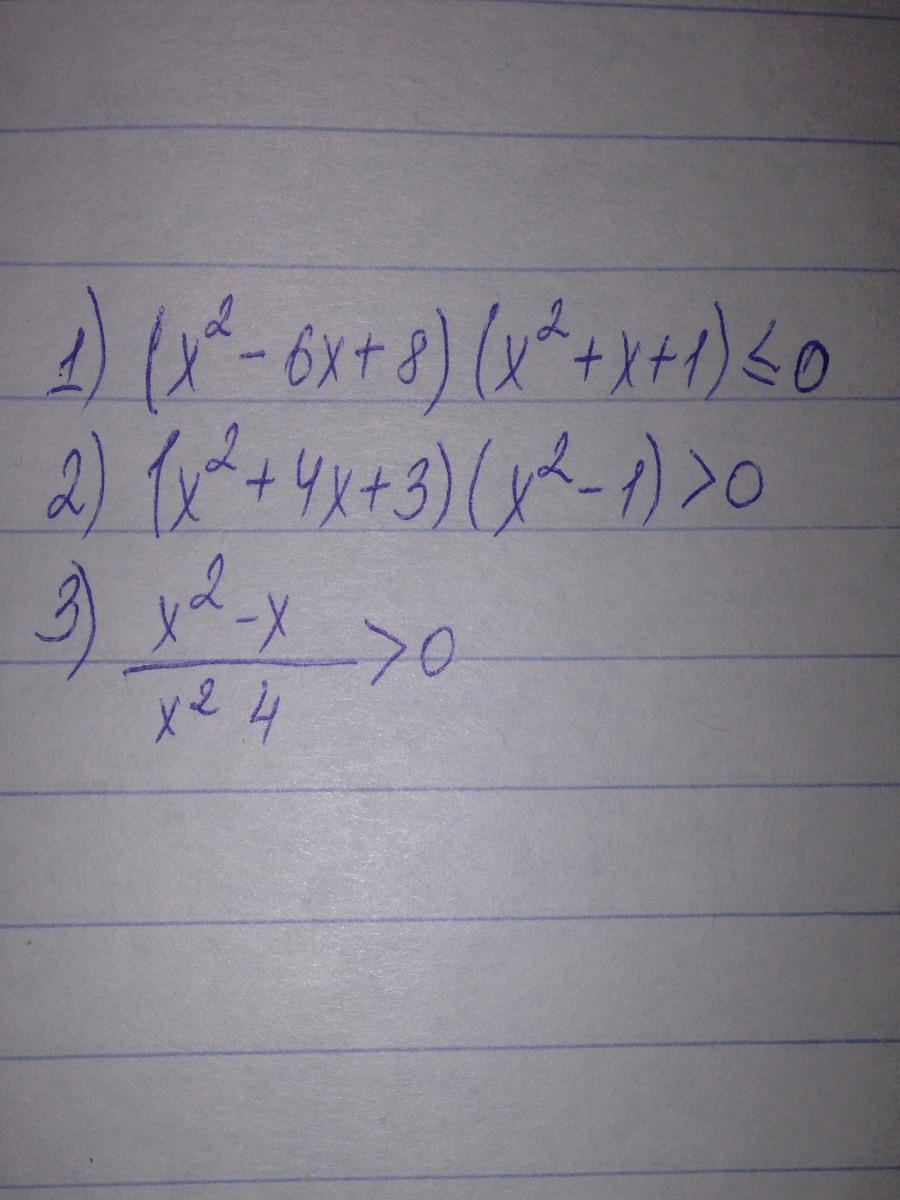 1) (x² - 6x + 8)(x² + x + 1) ≤ 0
2) (x² + 4x + 3)(x² - 1) > 0
3) x² - x
x² 4 > 0